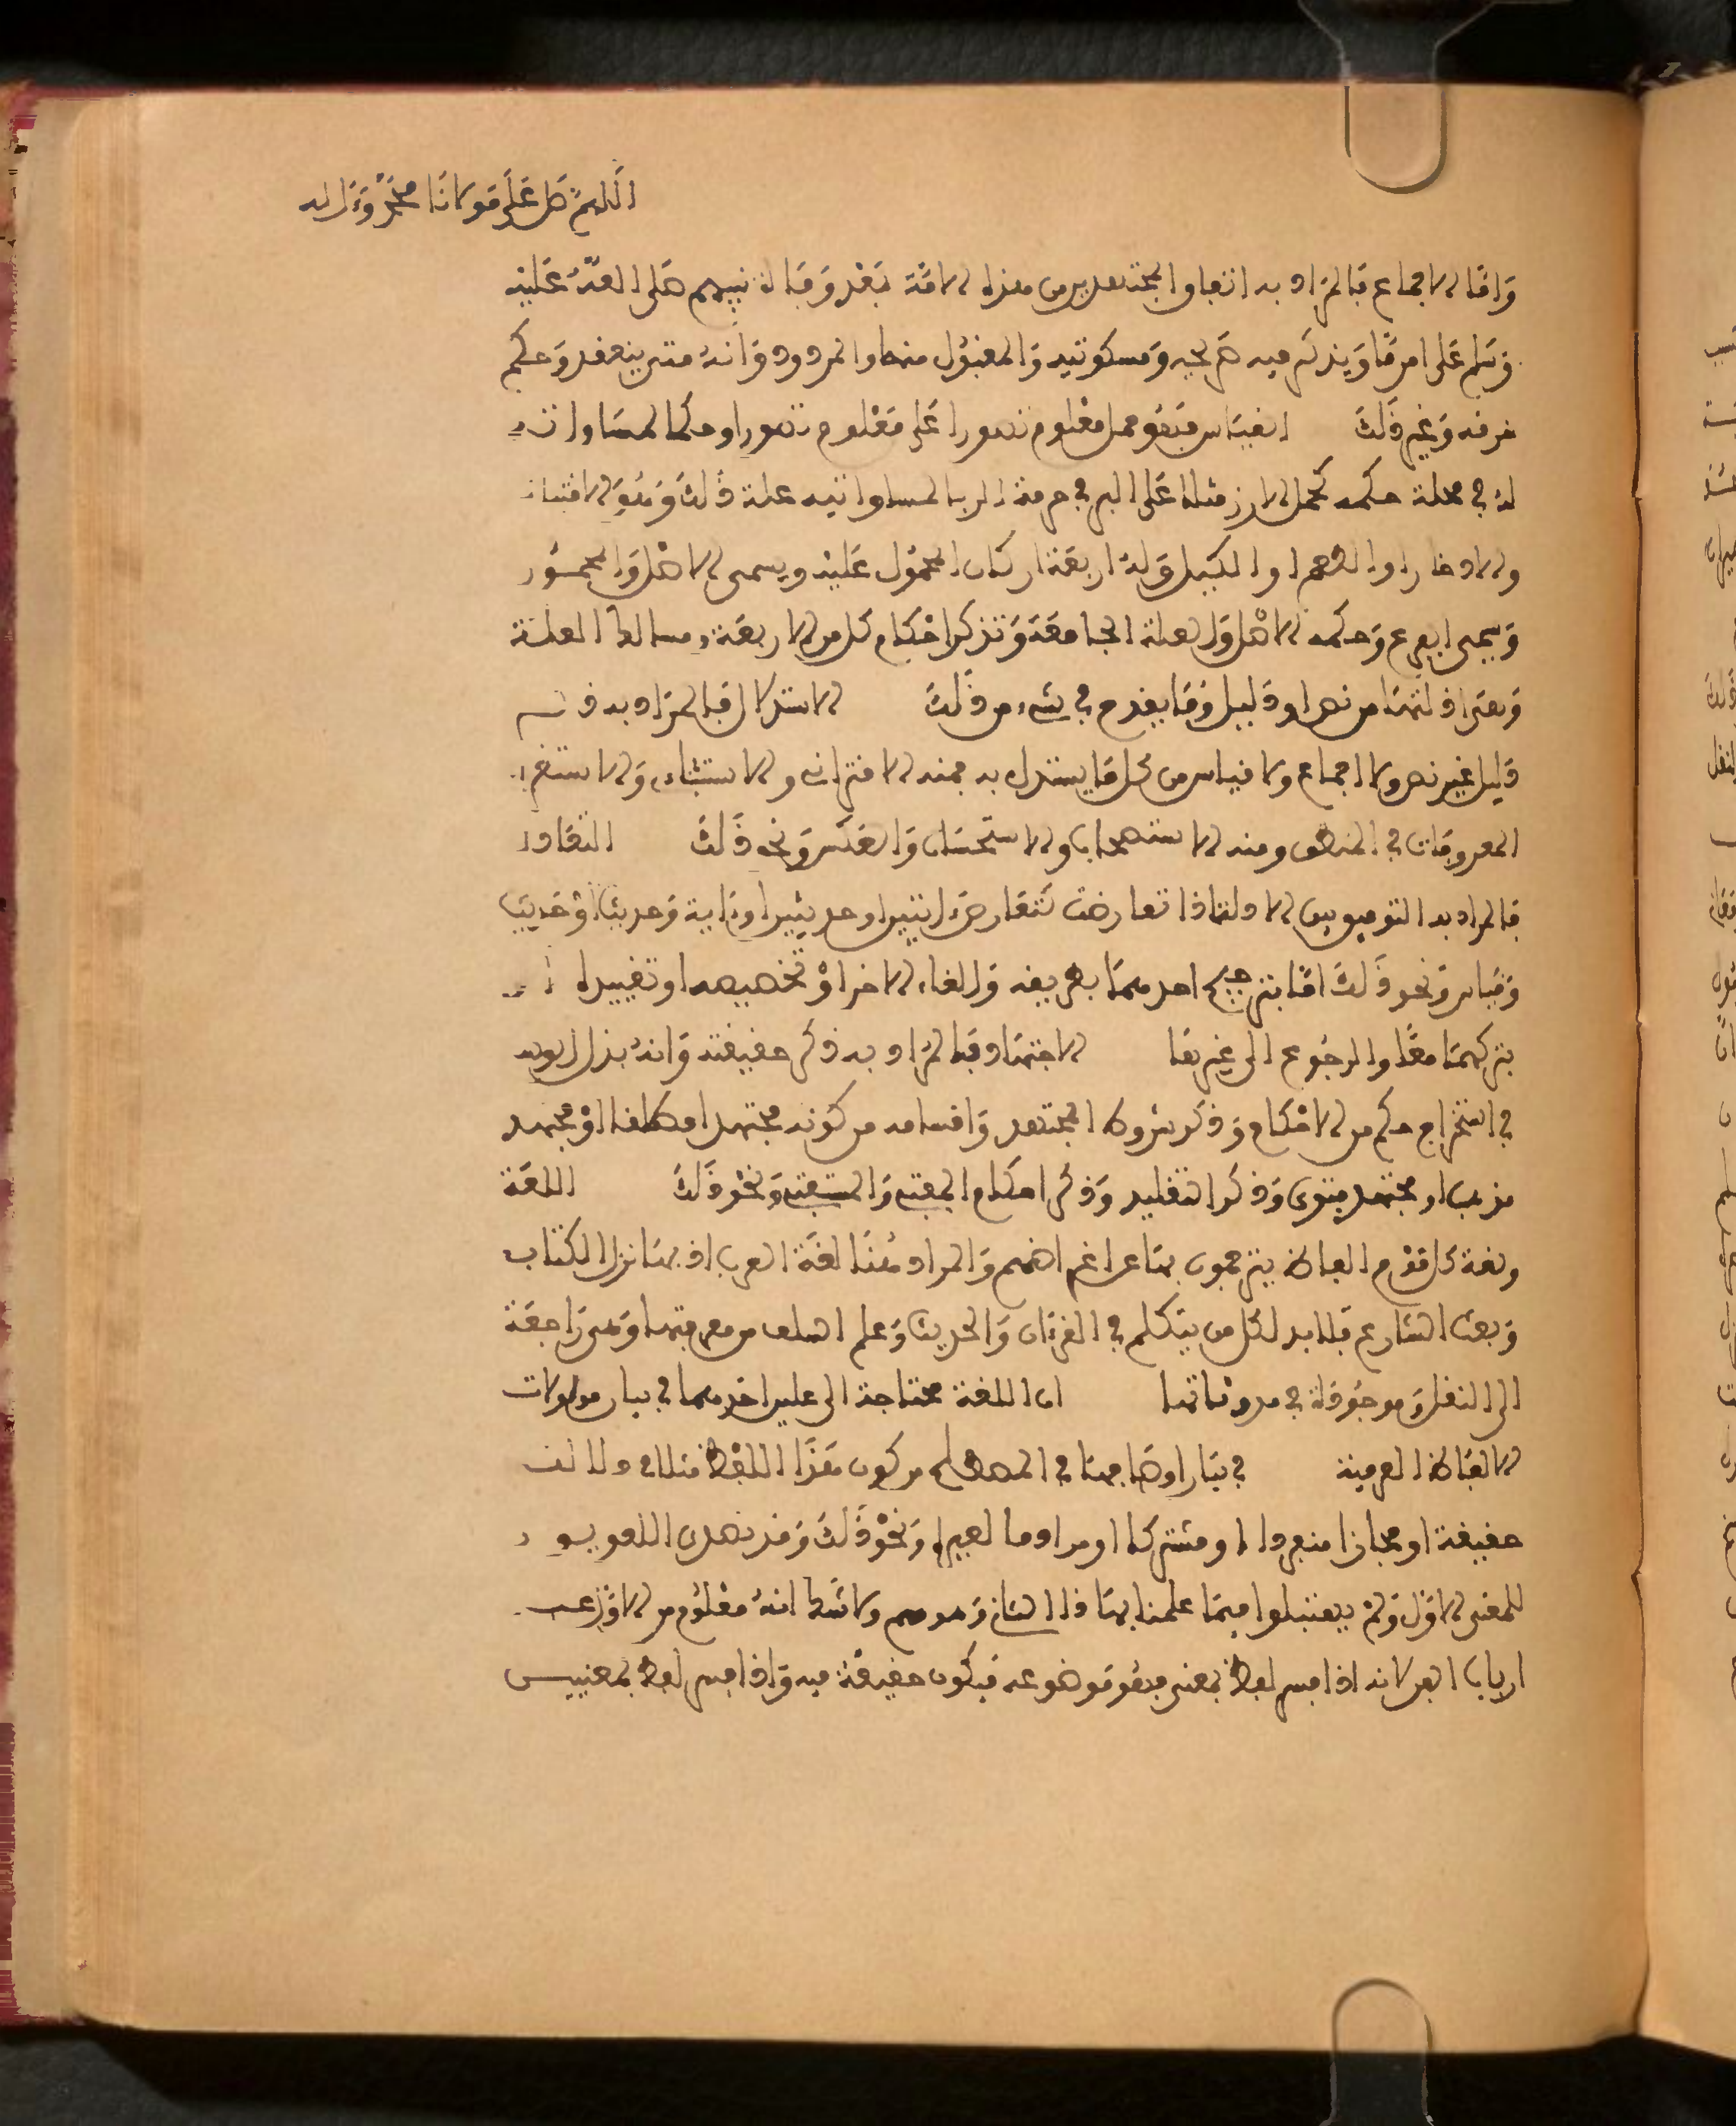 اللهم صل على مولانا محمد وءاله
وأما الاجماع فالمراد به اتفاق المجتهدين من هذه الامة بعد وفاة نبيهم صلى الله عليه
وسلم على امر ما ويذكر فيه صريحه ومسكوتيه والمقبول منها والمردود وأنه متى ينعقد وحكم
خرفه وغير ذلك القياس فهو حمل معلوم تصورا على معلوم تصورا وحكما لمساواته
له في علة حكمه كحمل الارز مثلا على البر في حرمة الربا لمساواتيه علة ذلك وهو الاقتيات
والادخار او الطعم او الكيل وله اربعة اركان المحمول عليه ويسمى الاصل والمحمول
ويسمى الفرع وحكمه الاصل والعلة الجامعة وتذكر احكام كل من الاربعة ومسالك العلة
وهي افادتها من نص او دليل وما يقدح في شيء من ذلك الاستدلال فالمراد به ذكر
دليل غير نص ولا اجماع ولا قياس من كل ما يستدل به فمنه الاقتراني والاستثناءي والاستقراء
المعروفات في المنطق ومنه الاستصحاب والاستحسان والعكس ونحو ذلك التعادل
فالمراد به التوفيق بين الادلة اذا تعارضت كتعارض ءايتين او حديثين او ءاية وحديث او حديث
وقياس ونحو ذلك اما بترجيح احدهما بطريقه والغاء الاخر او تخصيصه او تقييده او
بتركهما معا والرجوع الى غيرهما الاجتهاد فالمراد به ذكر حقيقته وأنه بذل الوسع
في استخراج حكم من الاحكام وذكر شروط المجتهد واقسامه من كونه مجتهدا مطلقا او مجتهد
مذهب او مجتهد فتوى وذكر التقليد وذكر احكام المفتي والمستفتي ونحو ذلك اللغة
ولغة كل قوم الفاظ يترجمون بها عن اغراضهم والمراد هنا لغة العرب اذ بها نزل الكتاب
وبعث الشارع فلا بد لكل من يتكلم في القرءان والحديث وعلم السلف من معرفتها وهي راجعة
الى النقل وموجودة في مدوناتها اما اللغة محتاجة الى علمين احدهما في بيان مدلولات
الالفاظ العربية في بيان اوصافها في المصطلح من كون هذا اللفظ مثلا في دلالته
حقيقة او مجازا منفردا او مشتركا او مرادفا لغيره ونحو ذلك وقد تصدى اللغويون
للمعنى الاول ولم يحتفلوا فيما علمنا بهذا الشان وهو مهم ولا شك انه معلوم من الاول عند
ارباب الفن لانه اذا فسر لفظ بمعنى فهو موضوعه فيكون حقيقة فيه واذا فسر لفظ بمعنيين